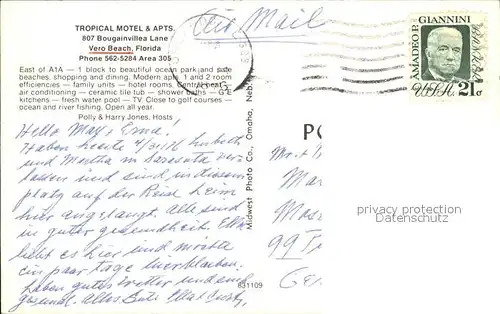 TROPICAL MOTEL & APTS.
807 Bougainvillea Lane
Vero Beach, Florida
Phone 562-5284 Area 305
East of A1A — 1 block to beautiful ocean park and safe
beaches, shopping and dining. Modern apts. 1 and 2 room
efficiencies — family units — hotel rooms. Central heat
air conditioning — ceramic tile tub — shower baths — G.E.
kitchens — fresh water pool — TV. Close to golf courses —
ocean and river fishing. Open all year.
Polly & Harry Jones, Hosts
Air Mail
AMADEO P. GIANNINI
21
Hello May, Erna!
Haben heute
und Martha in Sarasota ver-
lassen und sind in diesem
platz auf der Reise heim
hier angelangt. Alle sind
in guter gesundheit. Ella
liebt es hier und möchte
ein paar tage hier bleiben.
haben gutes wetter und sind
gesund. Alles Gute Ella
Midwest Photo Co., Omaha, Nebr.
831109
PO
99
Ger
privacy protection
AnsichtskartenVersand.com